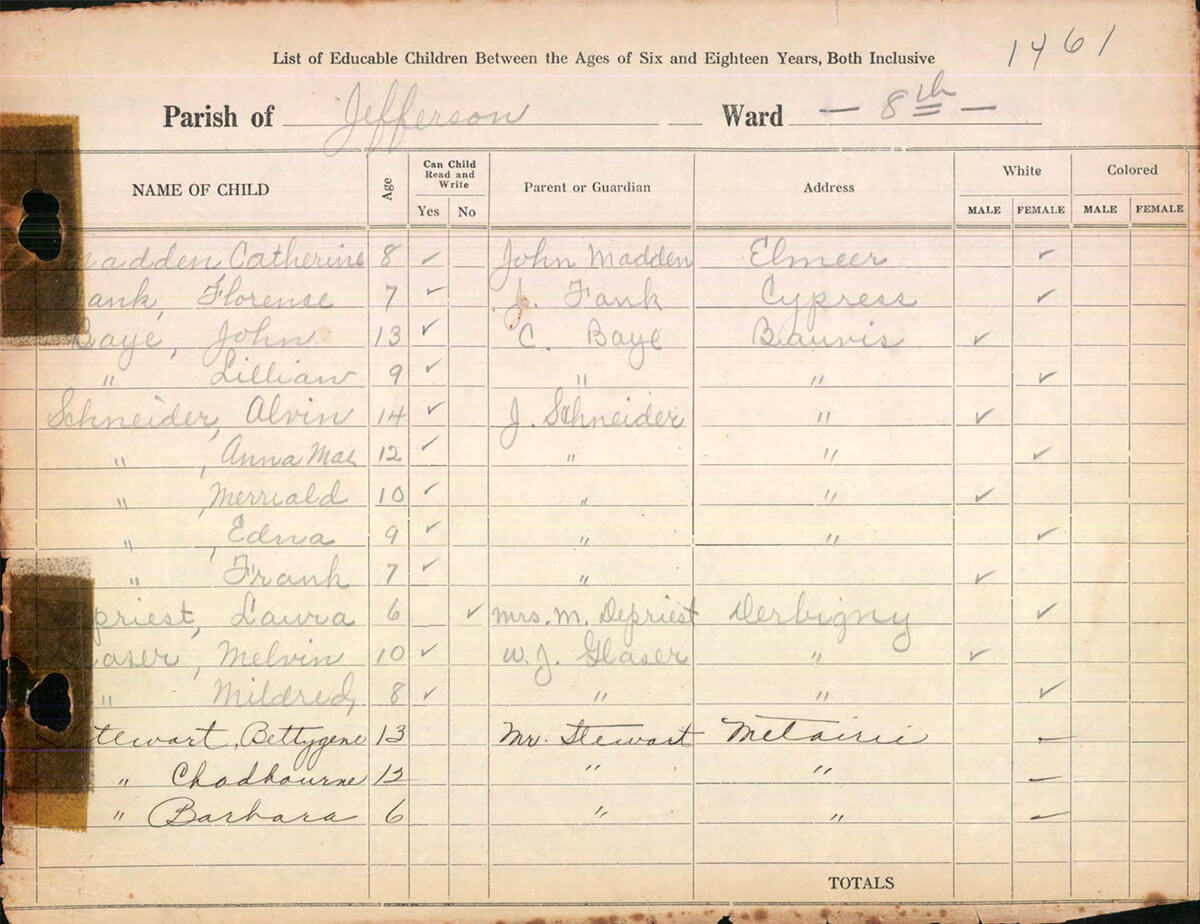 1461
List of Educable Children Between the Ages of Six and Eighteen Years, Both Inclusive
Parish of Jefferson Ward — 8th —
NAME OF CHILD Age Can Child Read and Write Yes No Parent or Guardian Address White MALE FEMALE Colored MALE FEMALE
adden, Catherine 8 ✓ John Madden Elmeer ✓
ank, Florense 7 ✓ J. Fank Cypress ✓
Baye, John 13 ✓ C. Baye Bauvis ✓
" Lillian 9 ✓ " " ✓
Schneider, Alvin 14 ✓ J. Schneider " ✓
" , Anna Mae 12 ✓ " " ✓
" , Merriald 10 ✓ " " ✓
" , Edna 9 ✓ " " ✓
" Frank 7 ✓ " ✓
priest, Laura 6 ✓ Mrs. M. Depriest Derbigny ✓
laser, Melvin 10 ✓ W. J. Glaser " ✓
" Mildred, 8 ✓ " " ✓
Stewart, Bettygene 13 Mr. Stewart Metairie ✓
" Chadbourne 12 " " ✓
" Barbara 6 " " ✓
TOTALS